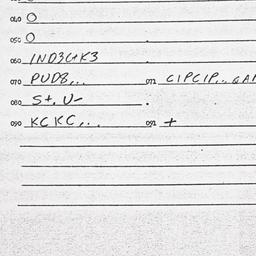 040 O
050 O
060 IND3G+K3
070 PUD8,.. 072 CIPCIP..GAI
080 S+.U-
090 KCKC,.. 092 +